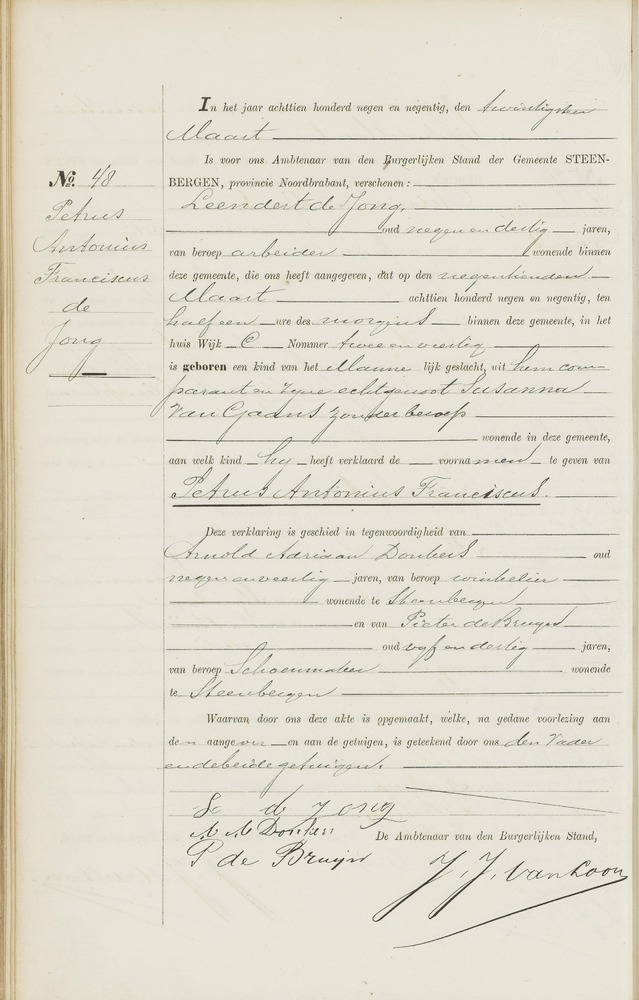 In het jaar achttien honderd negen en negentig, den twintigsten
Maart
Is voor ons Ambtenaar van den Burgerlijken Stand der Gemeente STEEN-
BERGEN, provincie Noordbrabant, verschenen:
No. 48
Petrus
Antonius
Franciscus
de
Jong
Leendert de Jong,
oud negen en dertig jaren,
van beroep arbeider wonende binnen
deze gemeente, die ons heeft aangegeven, dat op den negentienden
Maart achttien honderd negen en negentig, ten
half een ure des morgens binnen deze gemeente, in het
huis Wijk C Nommer twee en veertig
is geboren een kind van het Manne lijk geslacht, uit hem com-
parant en zyne echtgenoot Susanna
Van Gaans zonder beroep
wonende in deze gemeente,
aan welk kind hy heeft verklaard de voorna men te geven van
Petrus Antonius Franciscus.
Deze verklaring is geschied in tegenwoordigheid van
Arnold Adriaan Donkers oud
negen en veertig jaren, van beroep winkelier
wonende te Steenbergen
en van Pieter de Bruyn
oud vyf en dertig jaren,
van beroep Schoenmaker wonende
te Steenbergen
Waarvan door ons deze akte is opgemaakt, welke, na gedane voorlezing aan
den aangever en aan de getuigen, is geteekend door ons den Vader
en de beide getuigen.
L de Jong
A A Donkers
De Ambtenaar van den Burgerlijken Stand,
P de Bruijn
J. J. van Loon